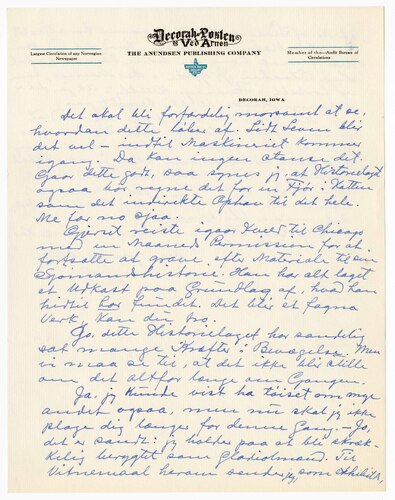 Decorah-Posten
Ved Arnen
Largest Circulation of any Norwegian
Newspaper
THE ANUNDSEN PUBLISHING COMPANY
Member of the Audit Bureau of
Circulations
DECORAH, IOWA
Det skal bli forfærdelig morsomt at se,
hvordan dette løber af. Lidt seven blir
det vel — indtil Maskineriet kommer
igang. Da kan ingen stanse det.
Gaar dette godt, saa synes jeg, at Historielaget
ogsaa bør regne det for in Fjær i Hatten
som det indirekte Ophav til det hele.
Me far no sjaa.
Gjerit reiste igaar Kveld til Chicago
med en Maaned Permission for at
fortsætte at grave efter Materiale til sin
Sjømandshistorie. Han har alt laget
et Udkast paa Grundlag af, hvad han
hidtil har fundet. Det blir et fagna
Verk, kan du tro.
Jo, dette Historielaget har sandelig
sat mange Kræfter i Bevægelse. Men
vi maa se til, at det ikke blir stille
om det altfor længe om Gangen.
Ja, jeg kunde vist ha tøiset om mye
andet ogsaa, men nu skal jeg ikke
plage dig længer for denne Gang. — Jo,
det er sandt: jeg holder paa at bli skræk-
kelig berygtet som Gladiolmand. Til
Vitnemaal herom sender jeg, som exhibit A,